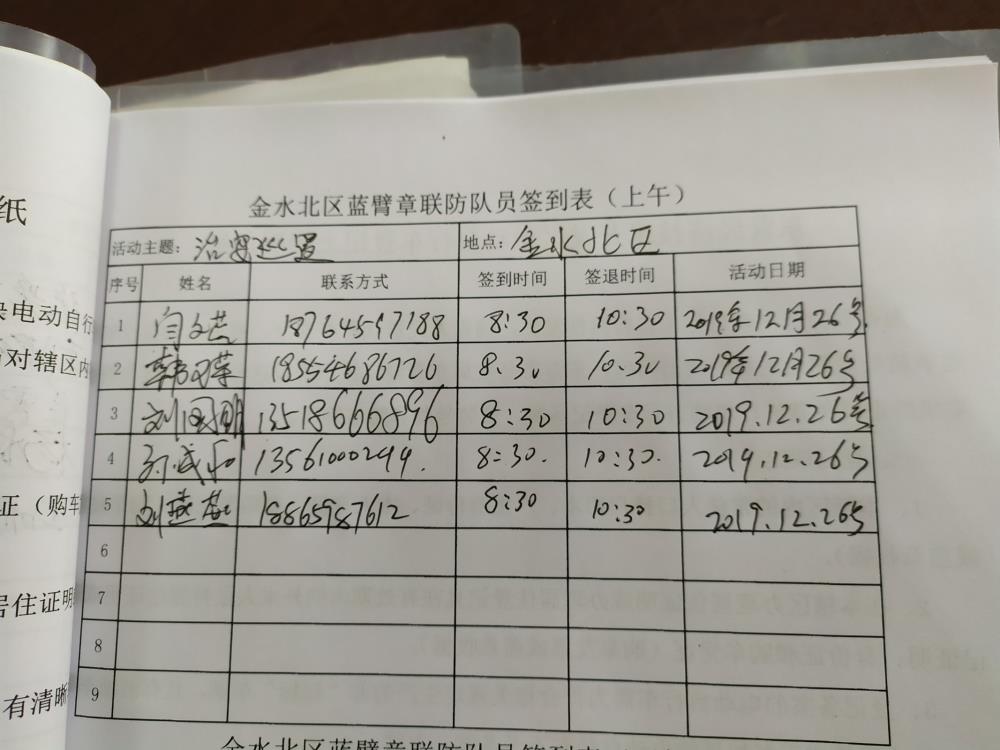 纸
电动自行
对辖区内
正（购车
居住证明
有清晰
金水北区蓝臂章联防队员签到表（上午）
活动主题：治安巡逻 地点：金水北区
序号 姓名 联系方式 签到时间 签退时间 活动日期
1 18764597188 8:30 10:30 2019年12月26号
2 18554686726 8.30 10.30 2019年12月26号
3 刘国明 13518666896 8:30 10:30 2019.12.26号
4 13561000294. 8:30. 10:30. 2019.12.26号
5 刘燕燕 18865987612 8:30 10:30 2019.12.26号
6
7
8
9
金水北区蓝臂章联防队员签到表